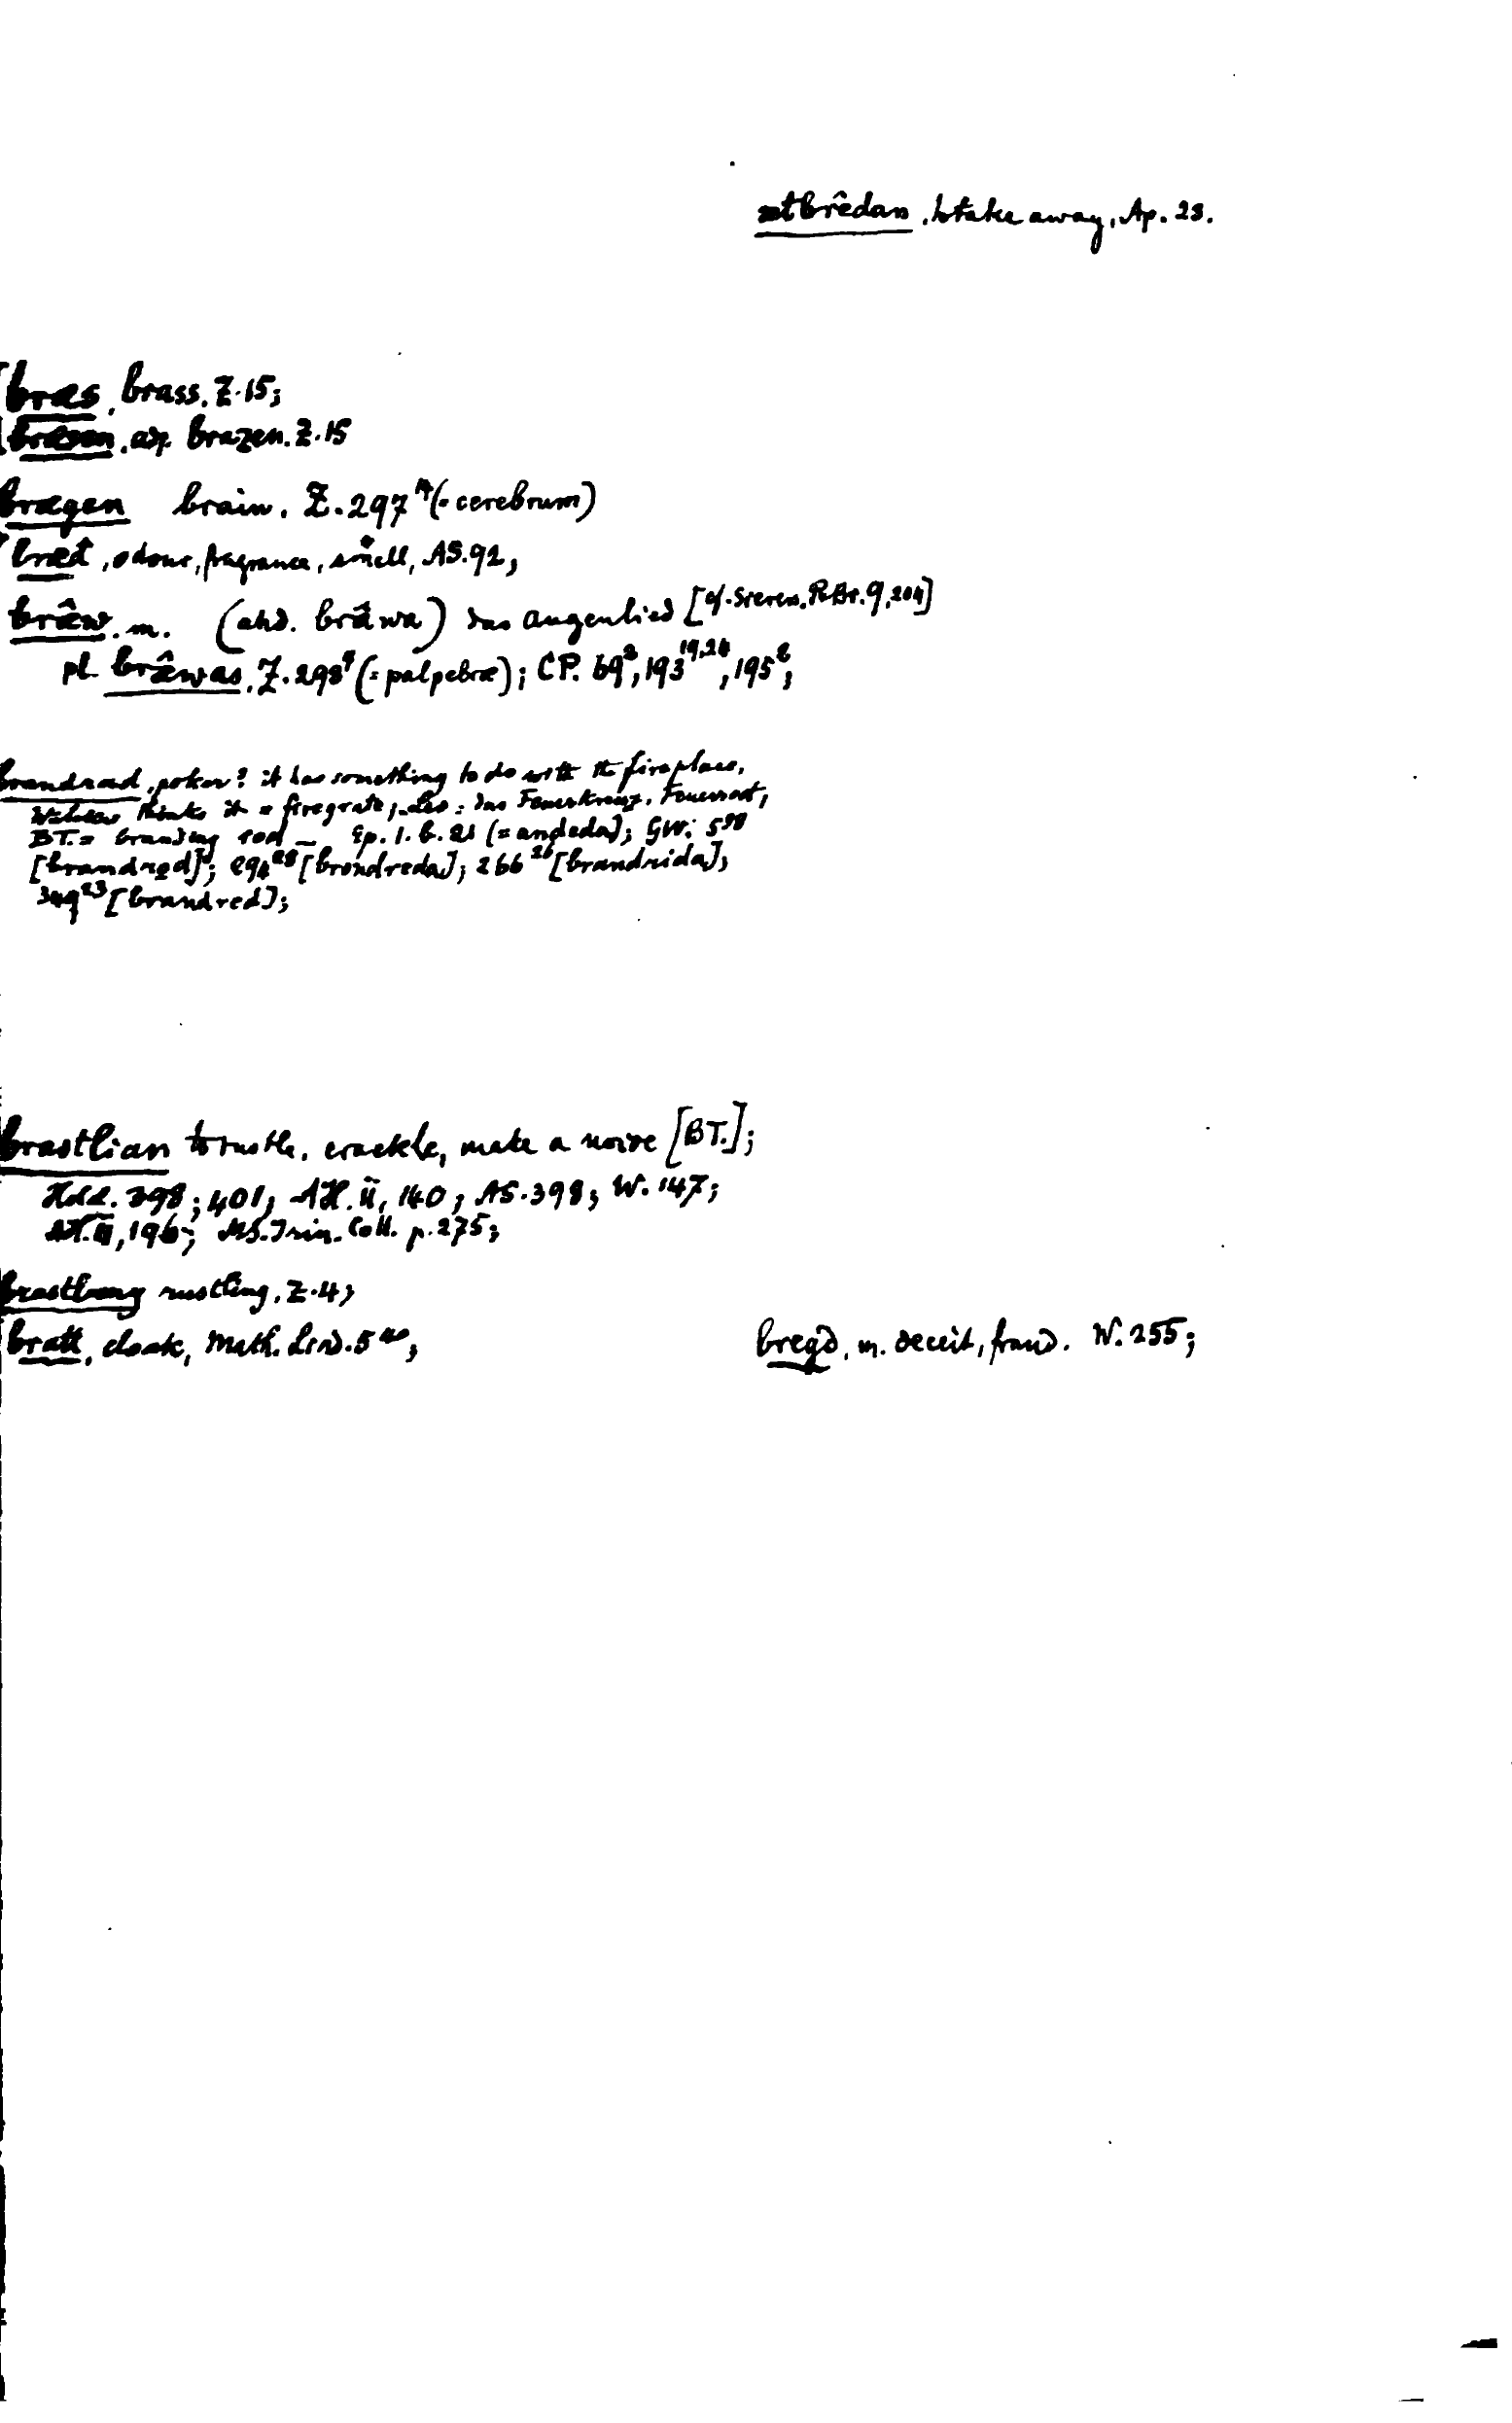 ætbrêdan, to take away, Ap. 23.
bræs, brass. Z. 15;
bræsen, adj. brazen. Z. 15
brægen brain. Z. 297 (= cerebrum)
bræð, odour, fragrance, smell, AS. 92,
brǣw. m. (ahd. brâwa) das augenlied [cf. Sievers, PBr. 9, 204]
pl. brǣwas, Z. 298⁹ (= palpebræ); CP. 69³, 193¹⁹,²⁴, 195⁸;
brandrad, poker? it has something to do with the fireplace,
thinks it = firegrate, das Feuerkreuz,
BT. = branding rod — Ep. 1. b. 21 (= andeda); GW. 5
[brandrod]; [brondreda]; 266²⁶ [brandrida];
349²³ [brandred];
brastlian to rustle, crackle, make a noise [BT.];
398; 401, AH. ii, 140, AS. 398; W. 147;
196; MS. Trin. Coll. p. 275;
brastlung rustling, Z. 4;
bratt, cloak, Math. Lind. 5⁴⁰,
bregd, m. deceit, fraud. W. 255;